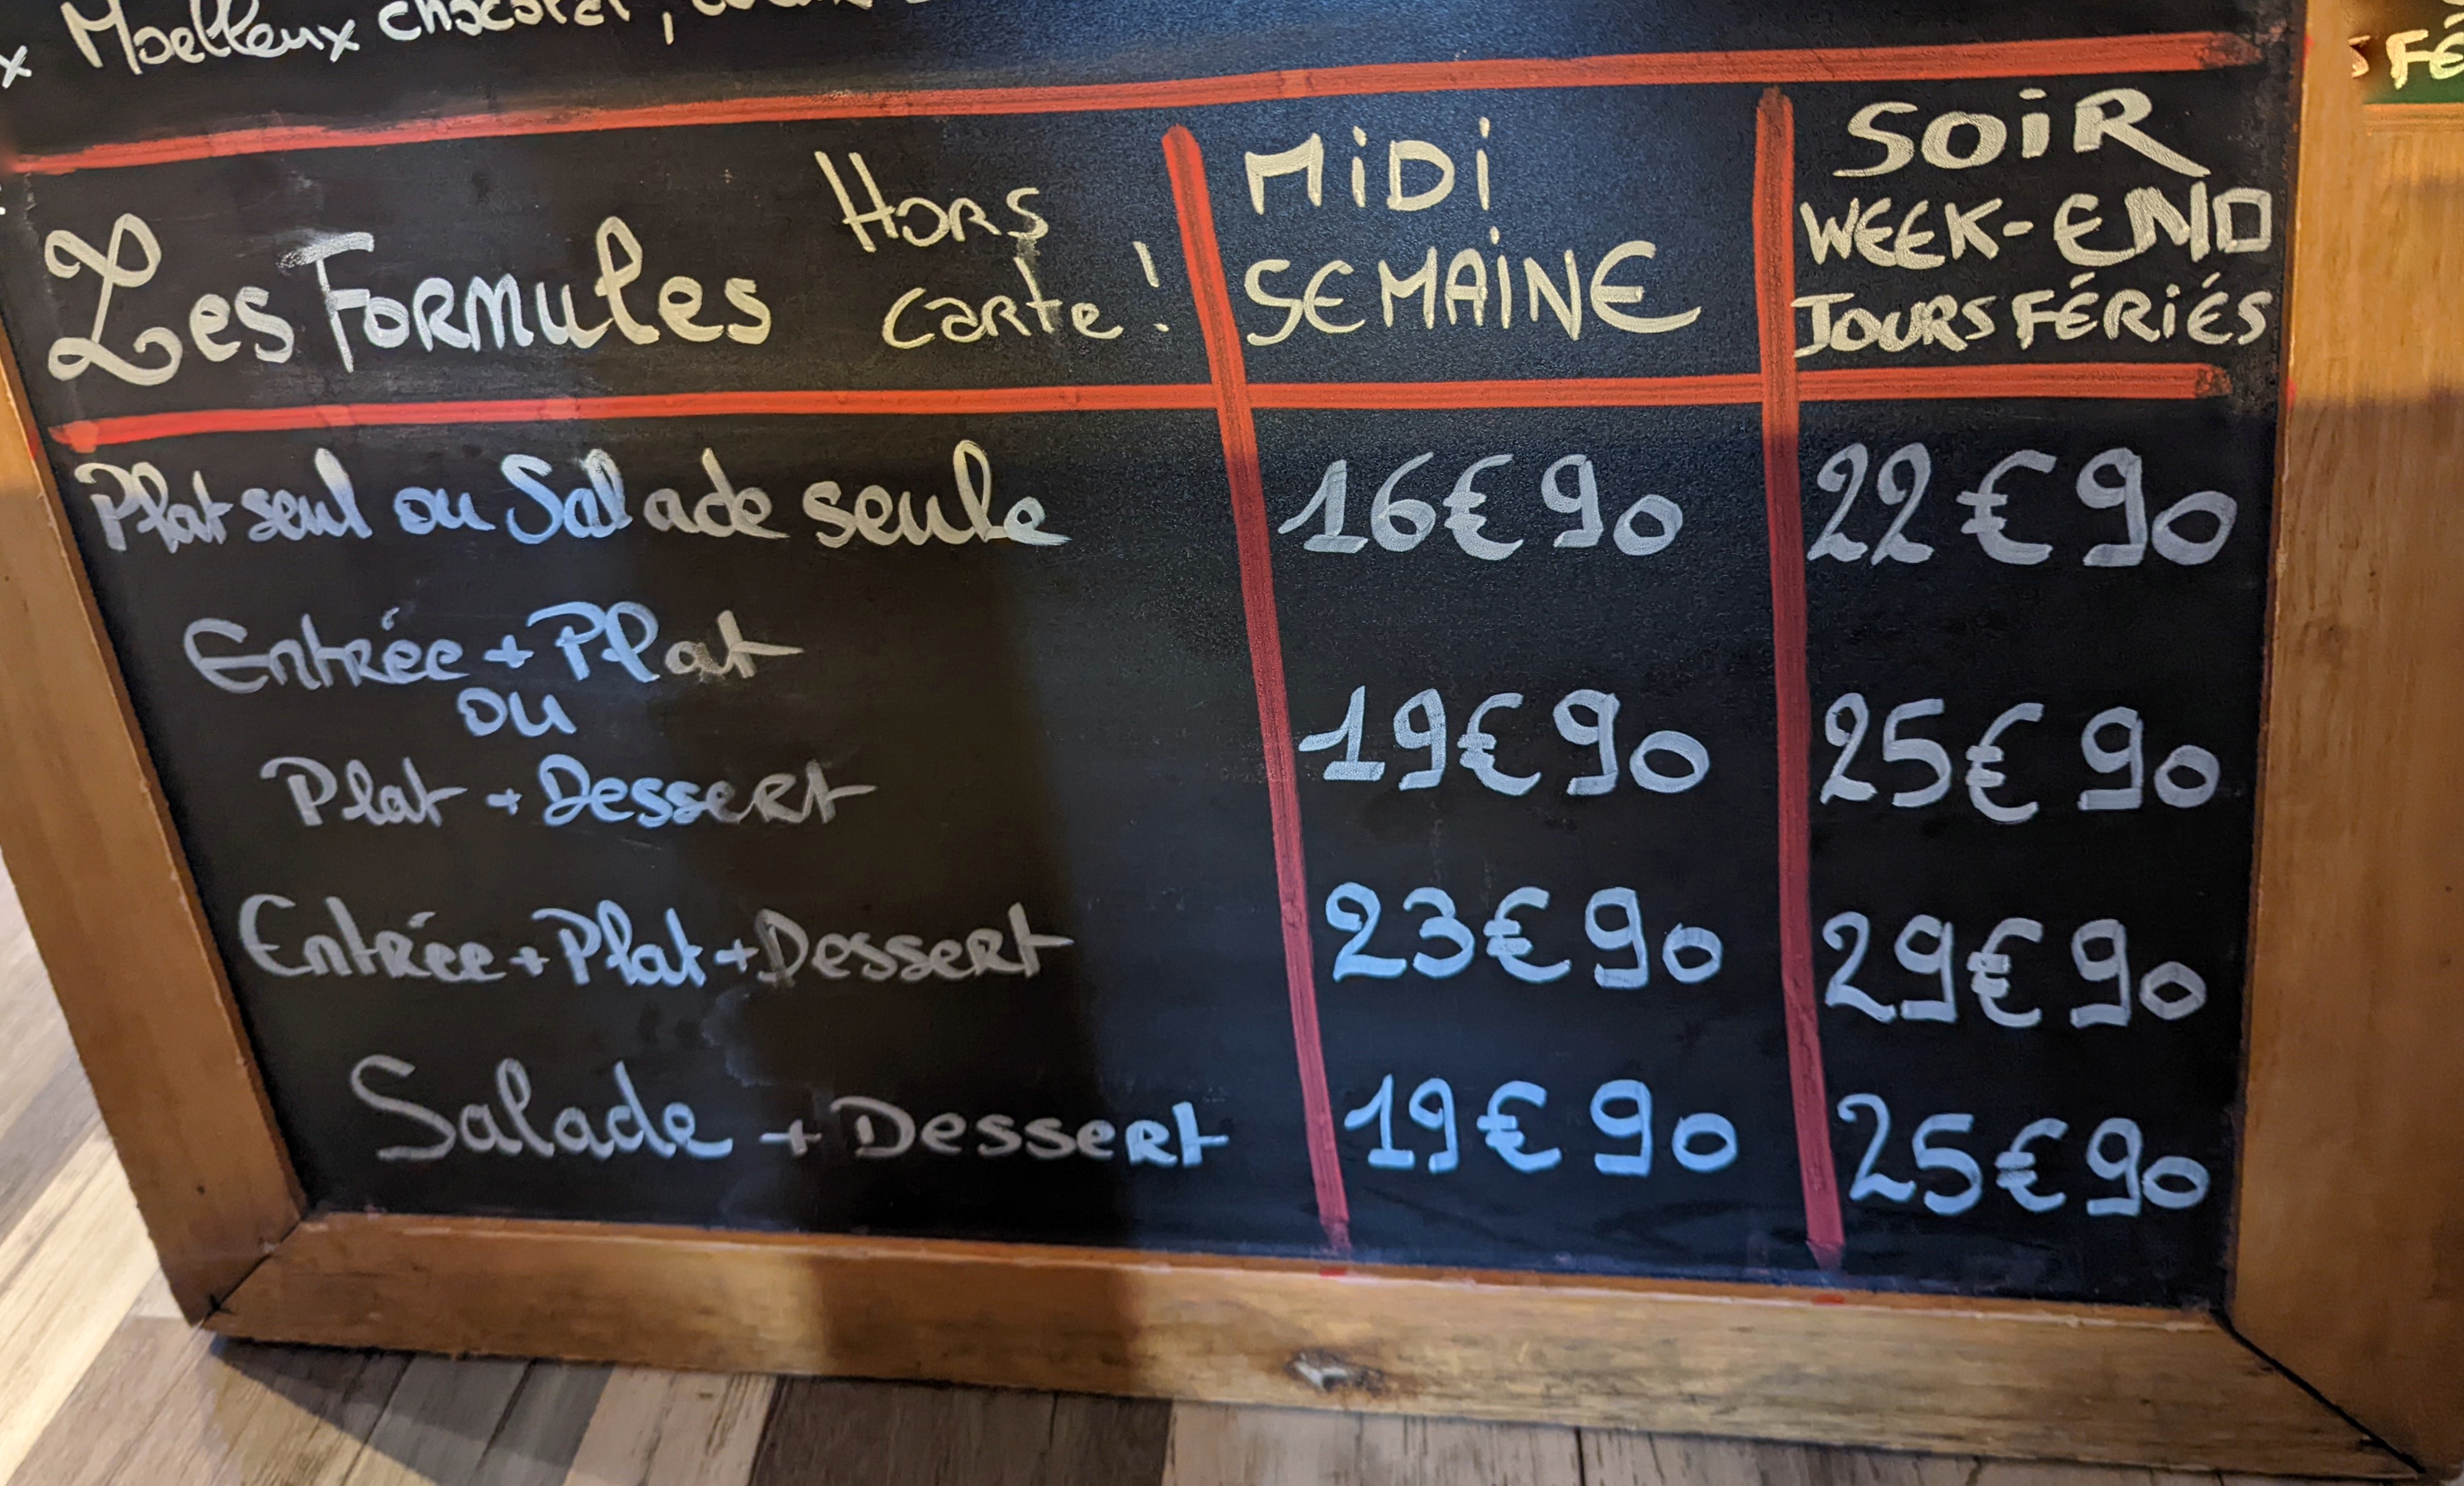 x Moelleux chocolat,
Les Formules Hors carte !
MiDi SEMAiNE
SOiR WEEK-END JOURS FÉRiÉS
Plat seul ou Salade seule 16€90 22€90
Entrée + Plat
ou 19€90 25€90
Plat + Dessert
Entrée + Plat + Dessert 23€90 29€90
Salade + Dessert 19€90 25€90